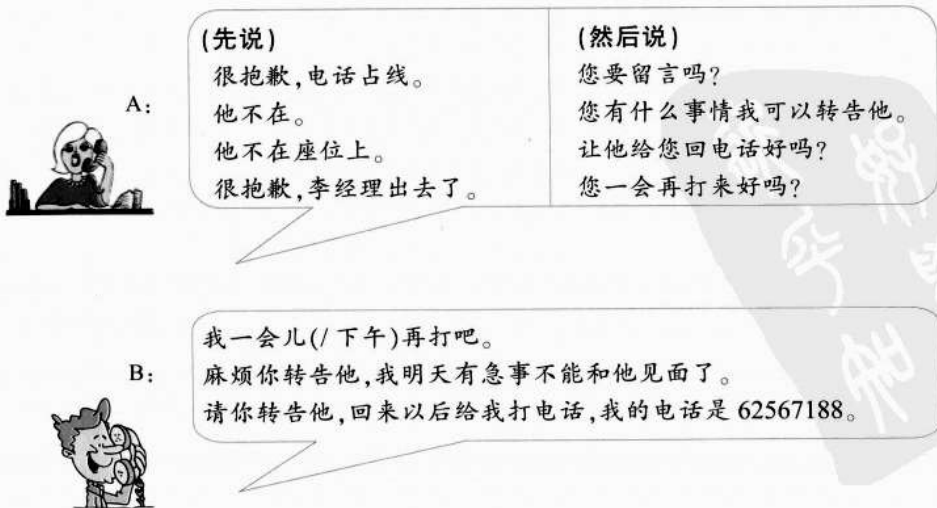 A:
(先说)
很抱歉,电话占线。
他不在。
他不在座位上。
很抱歉,李经理出去了。
(然后说)
您要留言吗?
您有什么事情我可以转告他。
让他给您回电话好吗?
您一会再打来好吗?
B:
我一会儿(/下午)再打吧。
麻烦你转告他,我明天有急事不能和他见面了。
请你转告他,回来以后给我打电话,我的电话是 62567188。